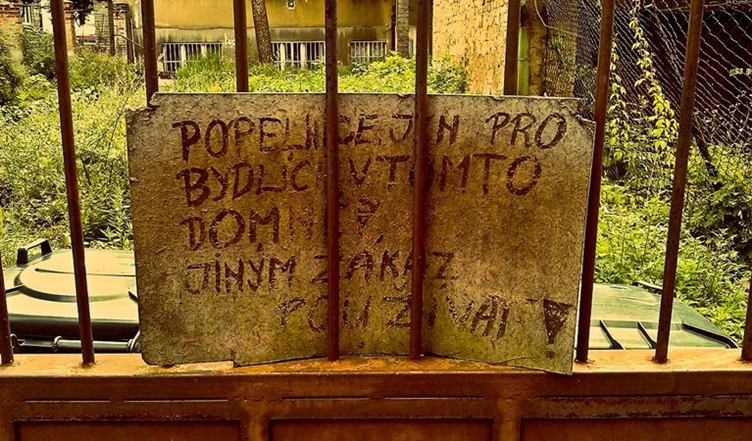 POPELNICE JEN PRO
BYDLÍCÍ V TOMTO
DOMĚ!
JINÝM ZÁKAZ
POUŽÍVAT!